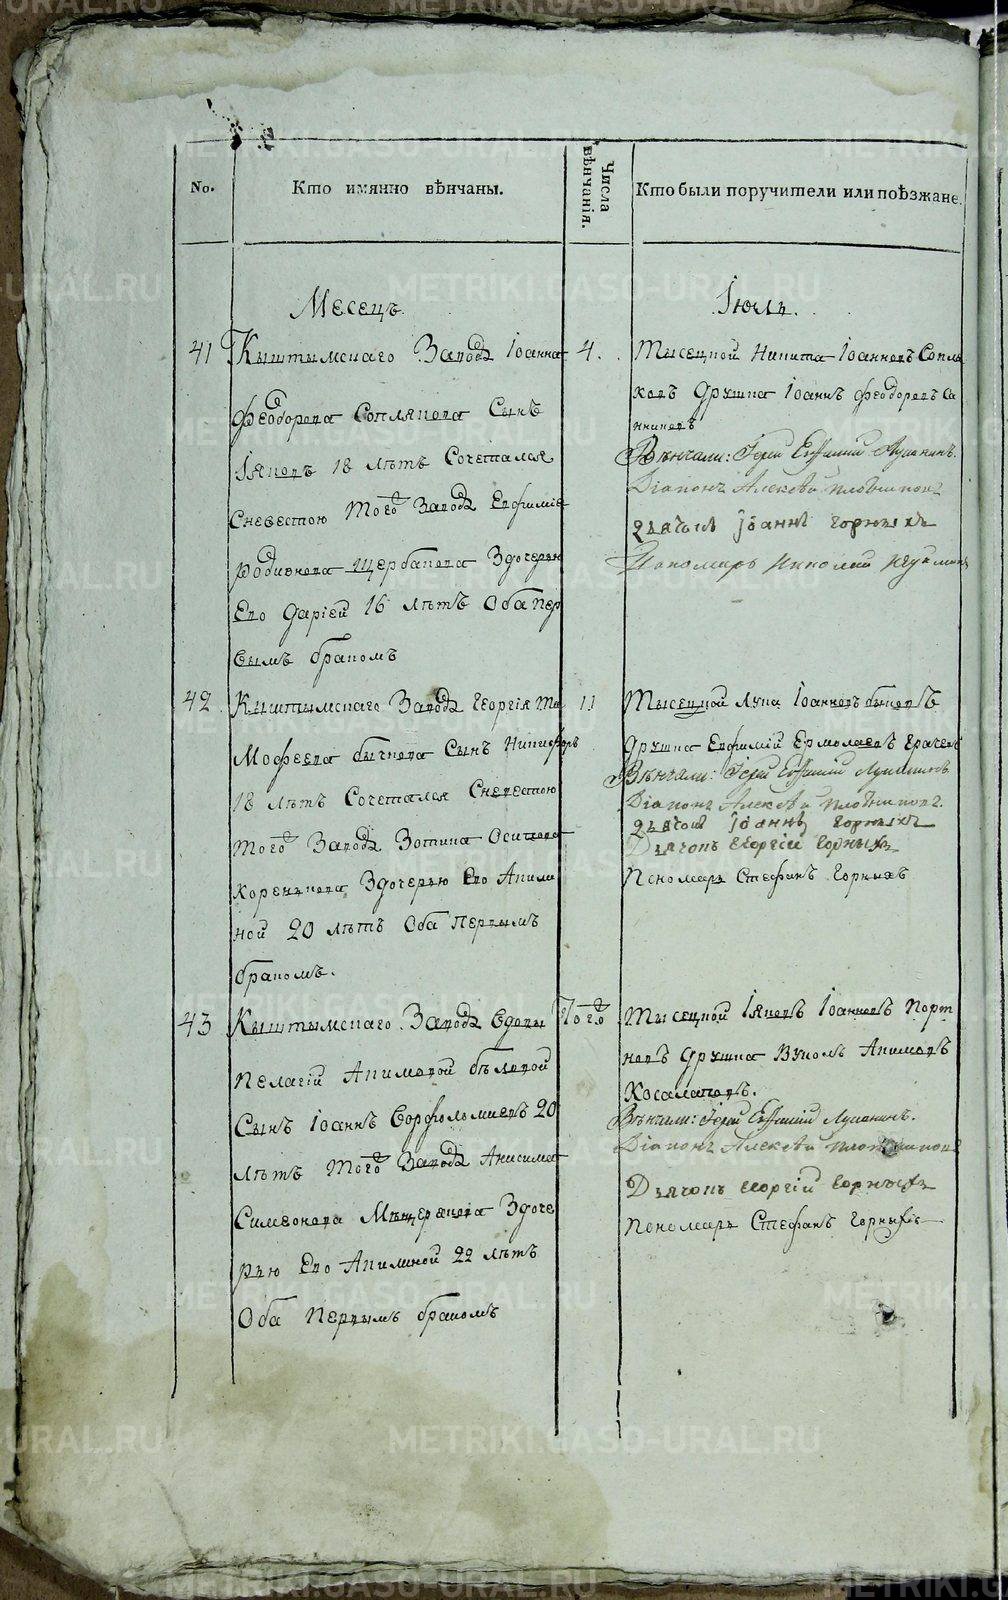 No.
Кто имянно вѣнчаны.
Числа вѣнчанія.
Кто были поручители или поѣзжане.
Месецъ
Іюль.
41
Кыштымскаго Завода Іоанна
Феодорова Соплякова Сынъ
Іяковъ 18 лѣтъ Сочетался
Сневестою Того Завода Евфимія
Родивнова Щербакова Здочерью
Его Даріей 16 лѣтъ Оба пер
вымъ бракомъ
4.
Тысецкой Никита Іоанновъ Сопля
ковъ Дружка Іоаннъ Феодоровъ Са
нниковъ
Вѣнчали: Іерей Евфимий
Діаконъ Алексѣй Плотников
Дьячокъ Іоаннъ Горныхъ
Пономарь Николай
42
Кыштымскаго Завода Георгія Ти
Мофеева бычкова Сынъ Никифоръ
18 лѣтъ Сочетался Сневестою
Того Завода Зотика Осипова
Коренькова Здочерью Его Акили
ной 20 лѣтъ Оба Первымъ
бракомъ.
11
Тысецкой Лука Іоанновъ быковъ
Дружка Евфимій Ермолаевъ Грачевъ
Вѣнчали: Іерей Евфимий
Діаконъ Алексѣй Плотников.
Дьячокъ Іоаннъ Горныхъ
Дьячокъ Георгій Горныхъ
Пономарь Стефанъ Горныхъ
43
Кыштымскаго Завода Вдовы
Пелагіи Акимовой бѣловой
Сынъ Іоаннъ Ворфоломиевъ 20
лѣтъ Того Завода Анисима
Симеонова Мещерякова Здоче
рью Его Акилиной 22 лѣтъ
Оба Первымъ бракомъ
Того
Тысецкой Іяковъ Іоанновъ Порт
новъ Дружка Вуколъ Акимовъ
Косалаповъ.
Вѣнчали: Іерей Евфимий
Діаконъ Алексѣй
Дьячокъ Георгій Горныхъ
Пономарь Стефанъ Горныхъ
METRIKI.GASO-URAL.RU